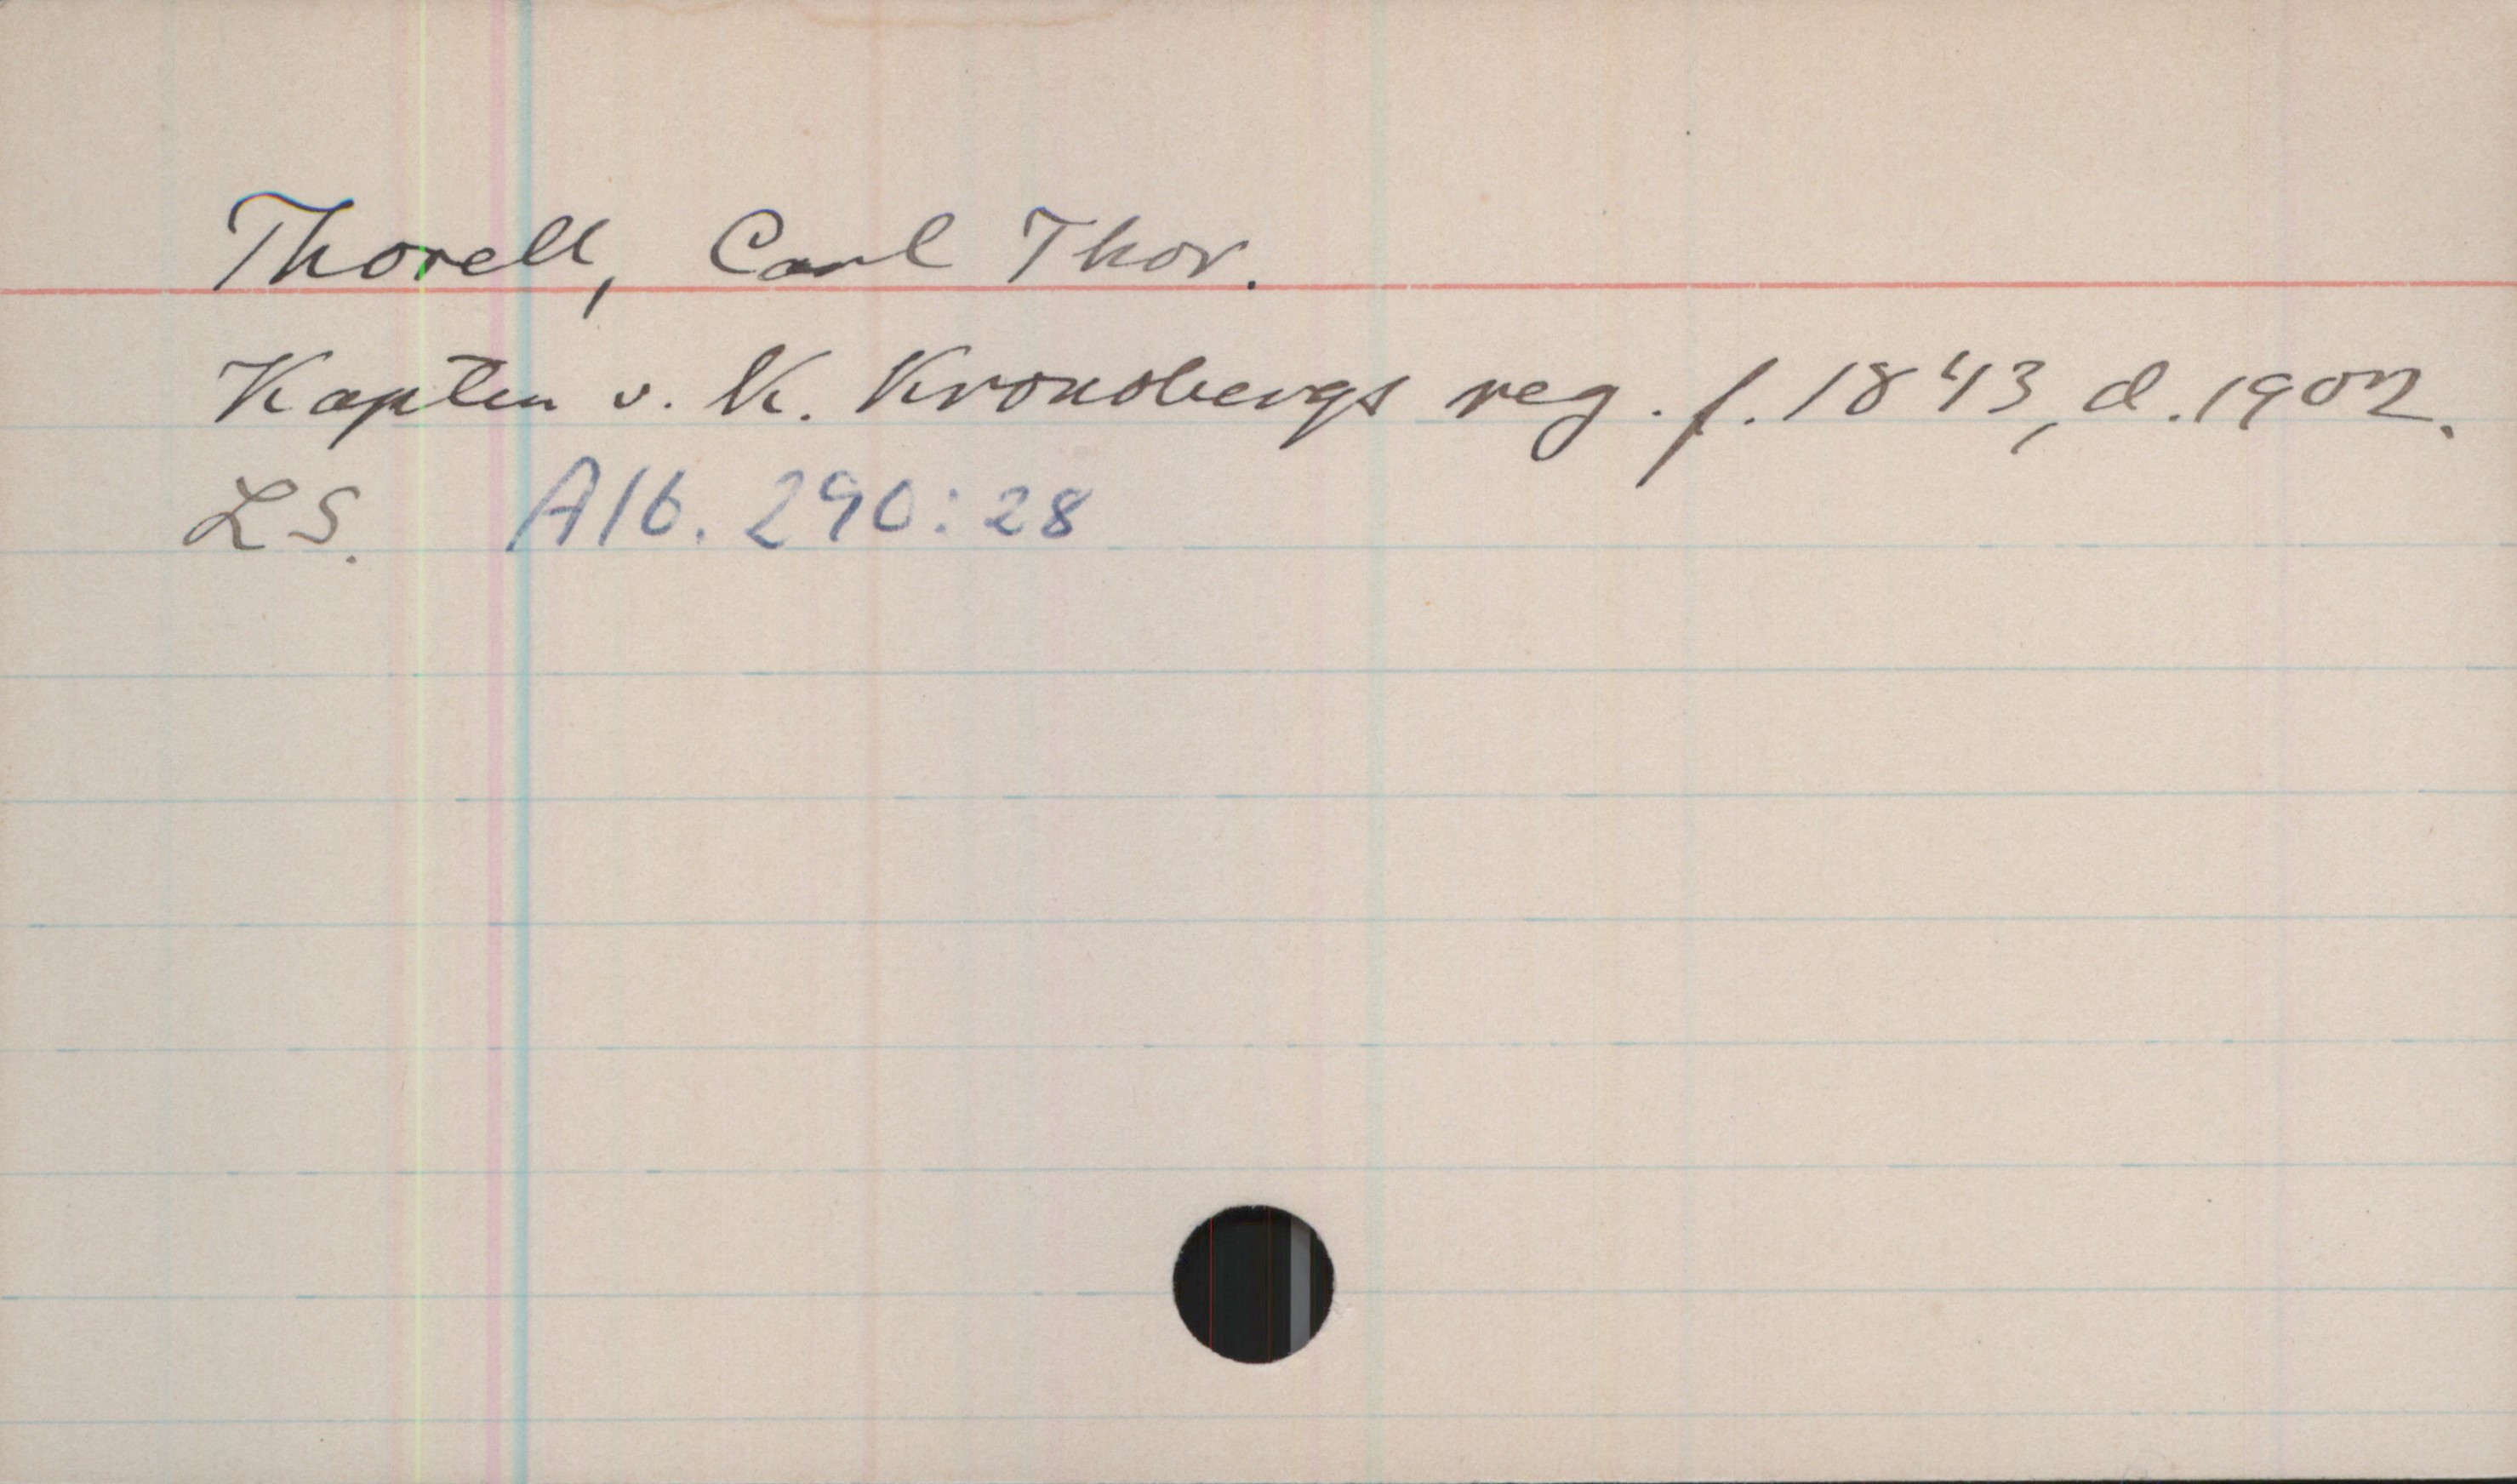 Thorell, Carl Thor.
Kapten v. K. Kronobergs reg. f. 1843, d. 1902.
LS. Alb. 290:28